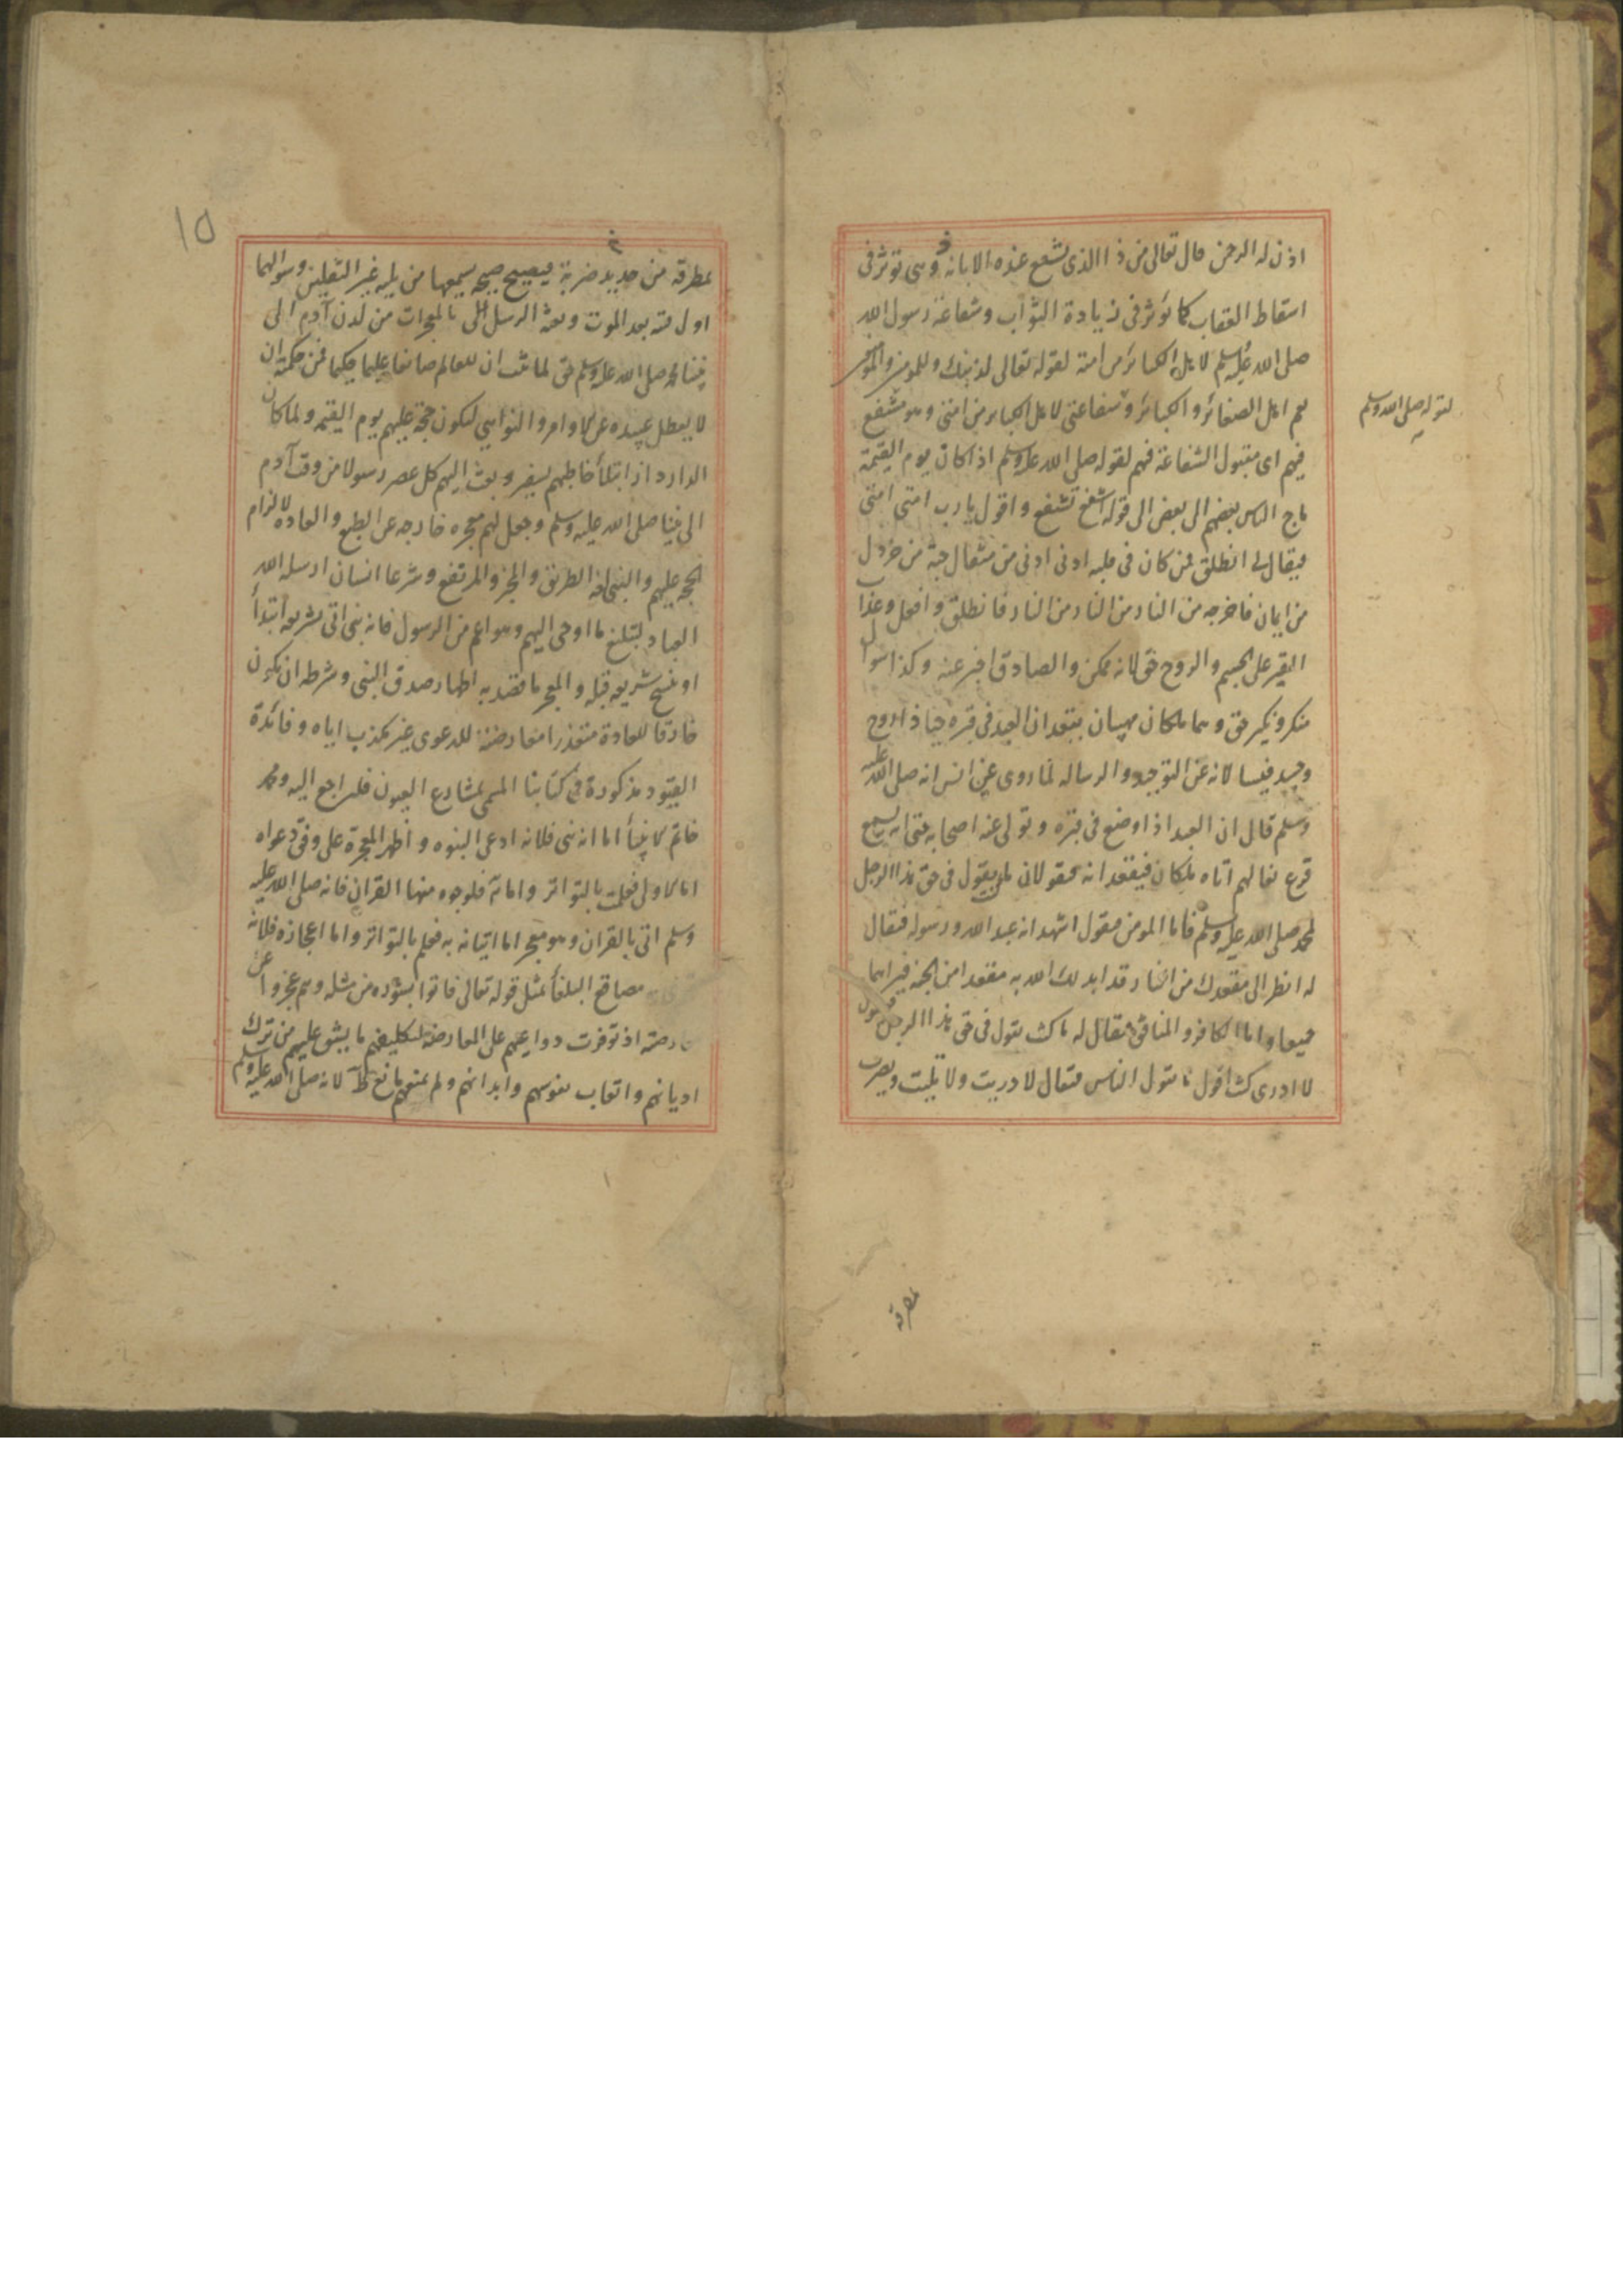 اذن له الرحمن قال تعالى من ذا الذى يشفع عنده الا باذنه وهى تؤثر فى
اسقاط العقاب كما تؤثر فى زيادة الثواب وشفاعة رسول الله
صلى الله عليه وسلم لاهل الكبائر من امته لقوله تعالى لذنبك وللمومنين والمومنت
لقوله صلى الله وسلم
هم اهل الصغائر والكبائر وشفاعتى لاهل الكبائر من امتى وهو مشفع
فيهم اى مقبول الشفاعة فيهم لقوله صلى الله عليه وسلم اذا كان يوم القيمة
ماج الناس بعضهم الى بعض الى قوله اشفع تشفع و اقول يا رب امتى امتى
فيقال لى انطلق فمن كان فى قلبه ادنى ادنى من مثقال حبة من خردل
من ايمان فاخرجه من النار من النار من النار فانطلق وافعل وعذاب
القبر على الجسم والروح حق لانه ممكن والصادق اخبر عنه وكذا سوال
منكر ونكير حق وهما ملكان مهيبان يقعدان العبد فى قبره حيا ذا روح
وجسد فيسالانه عن التوحيد والرساله لما روى عن انس انه صلى الله عليه
وسلم قال ان العبد اذا وضع فى قبره وتولى عنه اصحابه حتى انه ليسمع
قرع نعالهم اتاه ملكان فيقعدانه فيقولان ما كنت تقول فى حق هذا الرجل
لمحمد صلى الله عليه وسلم فاما المومن فيقول اشهد انه عبد الله ورسوله فيقال
له انظر الى مقعدك من النار قد ابدلك الله به مقعدا من الجنة فيراهما
جميعا واما الكافر والمنافق فيقال له ما كنت تقول فى حق هذا الرجل فيقول
لا ادرى كنت اقول ما يقول الناس فيقال لا دريت ولا تليت ويضرب
مطرقه
١٥
بمطرقة من حديد ضربة فيصيح صيحه يسمعها من يليه غير الثقلين وسوالهما
اول بعد الموت وبعثة الرسل بالمعجزات من لدن آدم الى
نبينا محمد صلى الله عليه وسلم حق لما ثبت ان للعالم صانعا عليما حكيما فمن حكمته ان
لا يعطل عبيده عن الاوامر والنواهى ليكون حجة عليهم يوم القيمه ولما كان
الدار دار ابتلأ خاطبهم بسفير وبعث اليهم كل عصر رسولا من وقت آدم
الى نبينا صلى الله عليه وسلم وجعل لهم معجزه خارجه عن الطبع والعاده لالزام
الحجه عليهم والنبى لغة الطريق والمخبر والمرتفع وشرعا انسان ارسله الله
العباد لتبليغ ما اوحى اليهم وهو اعم من الرسول فانه نبى اتى بشريعه ابتدأ
او بنسخ شريعه قبله والمعجز ما قصد به اظهار صدق النبى وشرطه ان يكون
خارقا للعادة متعذرا معارضته للدعوى غير مكذب اياه وفائدة
القيود مذكورة فى كتابنا المسمى بمشارع العيون فليراجع اليه ومحمد
خاتم الانبيأ اما انه نبى فلانه ادعى النبوه و اظهر المعجزة على وفق دعواه
اما الاولى فعلمت بالتواتر واما فلوجوه منها القران فانه صلى الله عليه
وسلم اتى بالقران وهو معجز اما اتيانه به فعلم بالتواتر واما اعجازه فلانه
مصاقع البلغأ بمثل قوله تعالى فاتوا بسورة من مثله وهم عجزوا عن
معارضته اذ توفرت دواعيهم على المعارضة لتكليفهم ما يشق عليهم من ترك
اديانهم واتعاب نفوسهم وابدانهم ولم يمنعهم مانع لانه صلى الله عليه وسلم